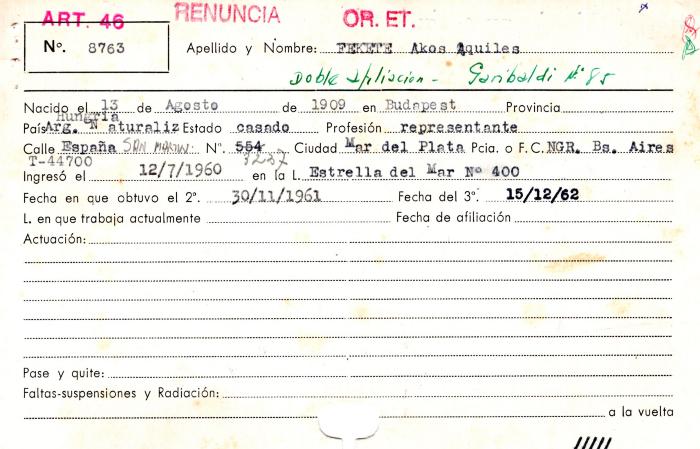 ART. 46 RENUNCIA OR. ET.
Nº. 8763 Apellido y Nombre: FEKETE Akos Aquiles
Doble Afiliacion - Garibaldi Nº 85
Nacido el 13 de Agosto de 1909 en Budapest Provincia
Hungria
País Arg. N aturaliz Estado casado Profesión representante
Calle España SAN MARTIN Nº. 554 Ciudad Mar del Plata Pcia. o F.C. NGR. Bs. Aires
T-44700 3237
Ingresó el 12/7/1960 en la L. Estrella del Mar Nº 400
Fecha en que obtuvo el 2º. 30/11/1961 Fecha del 3º. 15/12/62
L. en que trabaja actualmente Fecha de afiliación:
Actuación:
Pase y quite:
Faltas-suspensiones y Radiación:
a la vuelta